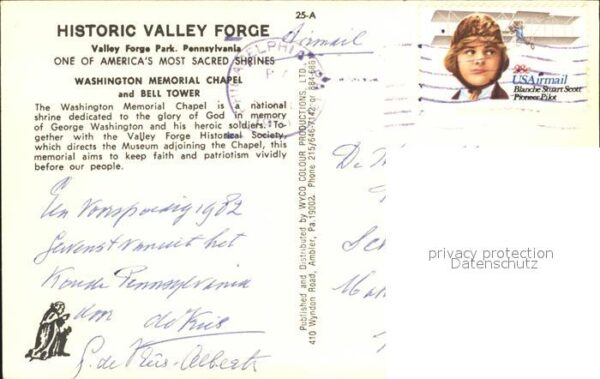 HISTORIC VALLEY FORGE
Valley Forge Park, Pennsylvania
ONE OF AMERICA'S MOST SACRED SHRINES
WASHINGTON MEMORIAL CHAPEL
and BELL TOWER
The Washington Memorial Chapel is a national
shrine dedicated to the glory of God in memory
of George Washington and his heroic soldiers. To-
gether with the Valley Forge Historical Society,
which directs the Museum adjoining the Chapel, this
memorial aims to keep faith and patriotism vividly
before our people.
Een Voorspoedig 1982
Gewenst vanuit het
Koude Pennsylvania
door
G. de
25-A
Airmail
Published and Distributed by WYCO COLOUR PRODUCTIONS, LTD.
410 Wyndon Road, Ambler, Pa. 19002. Phone 215/646-7142 or 884-
28c
USAirmail
Blanche Stuart Scott
Pioneer Pilot
privacy protection
Datenschutz